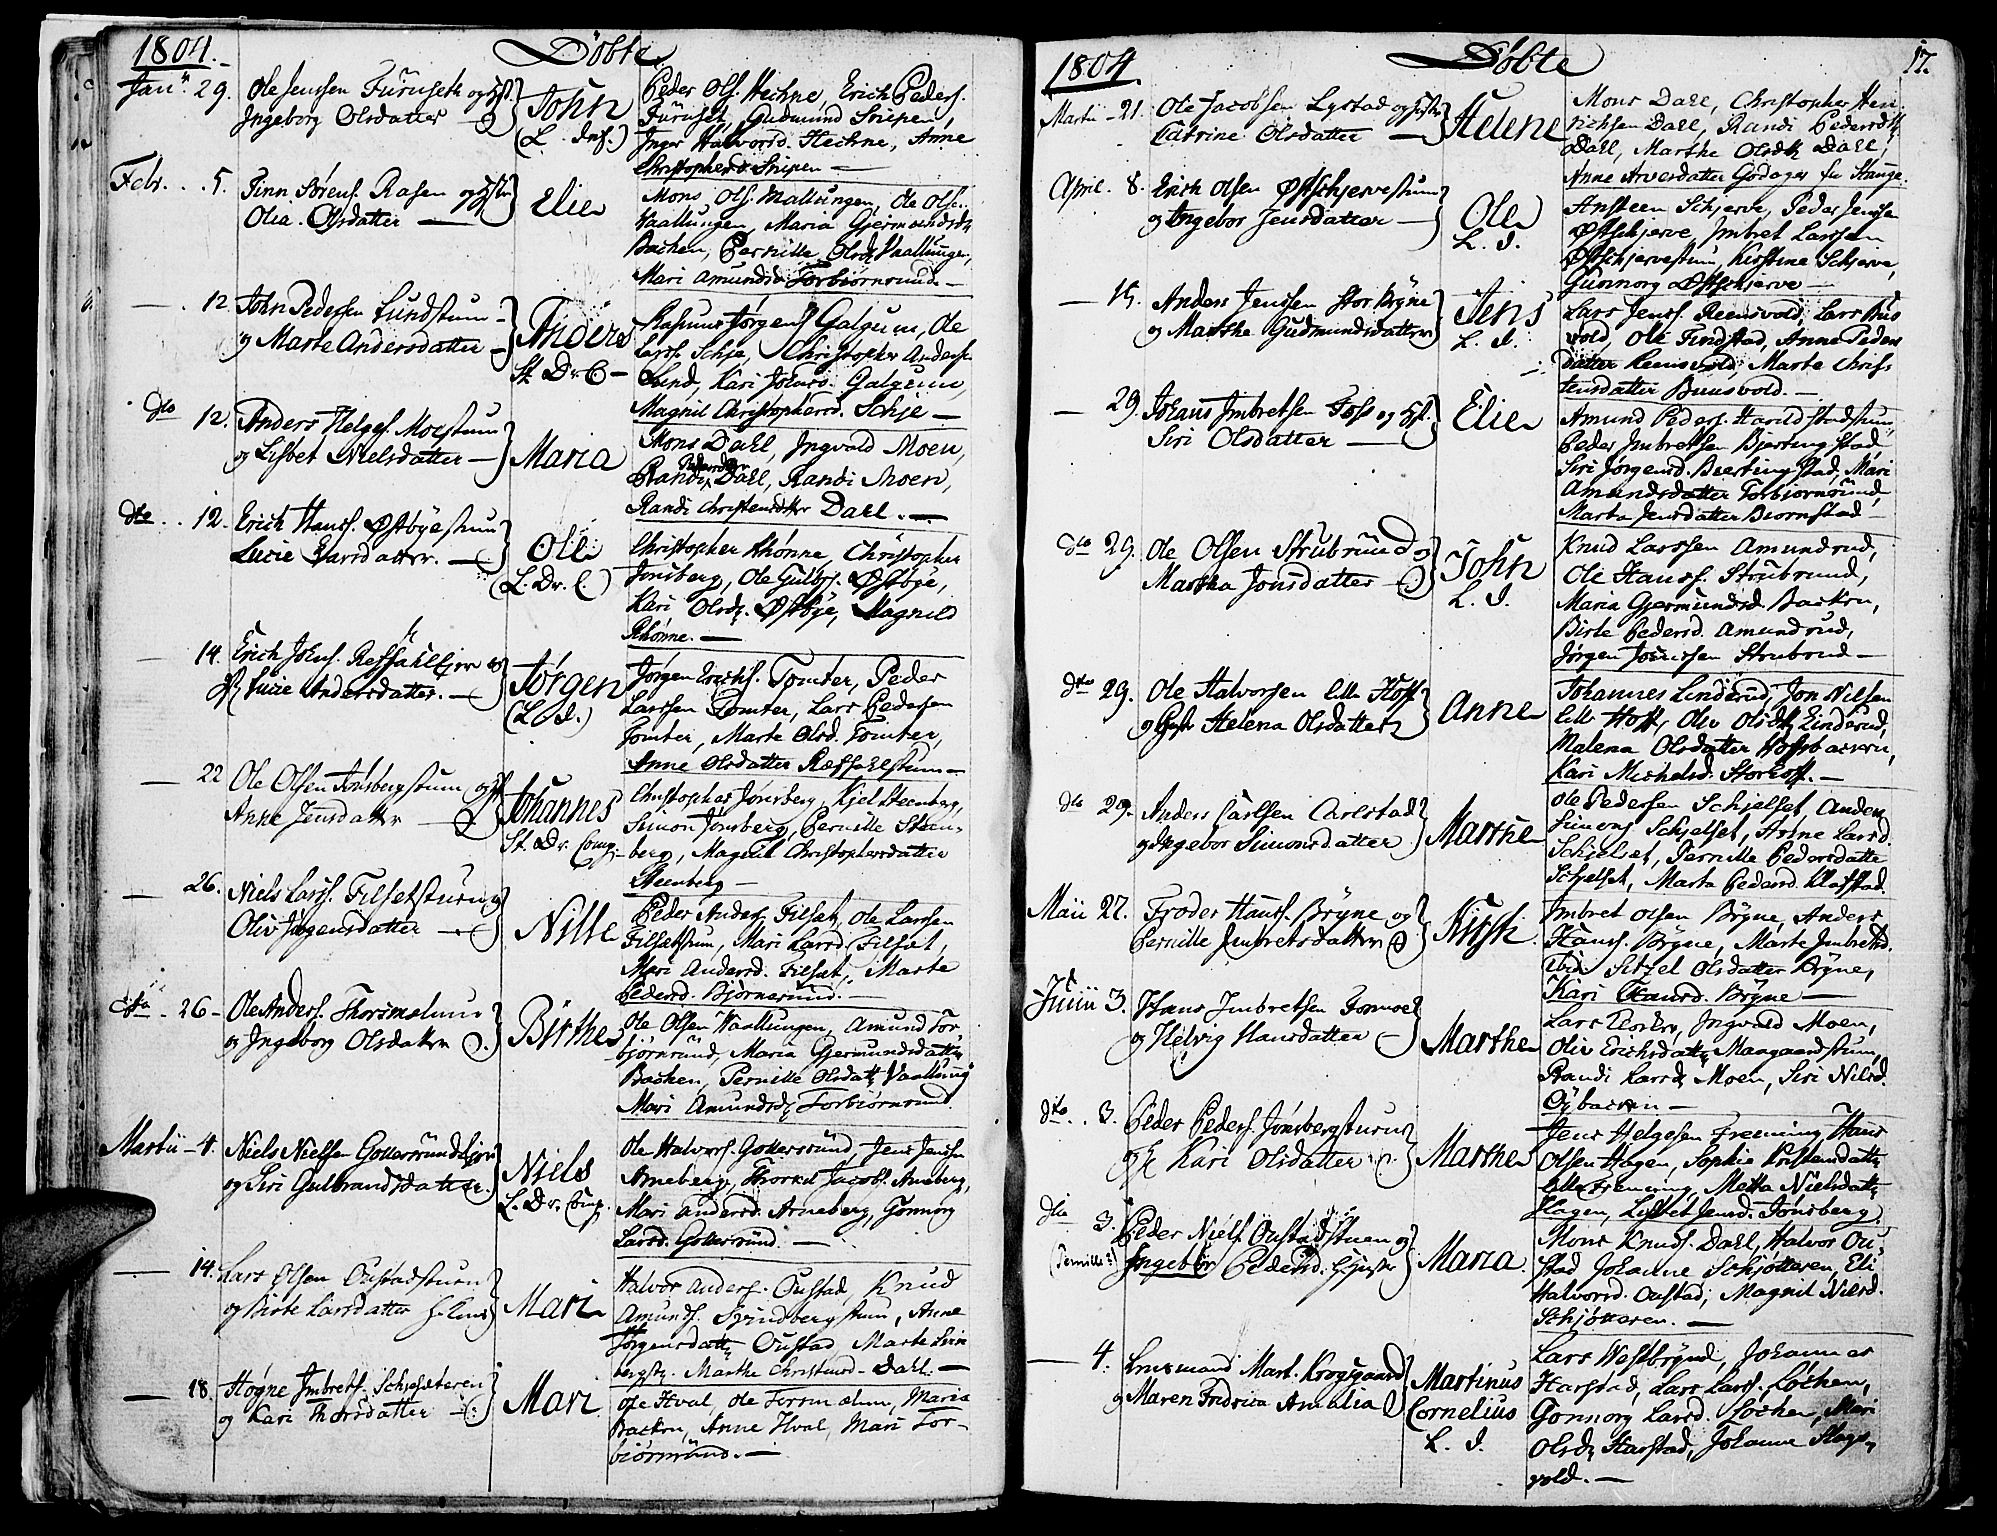 1804.
Døbte
Jan. 29.
Ole Jenssen Furuseth og Hst.
Ingeborg Olsdatter
John
(L. Inf.)
Peder Ols. Hechne, Erich Peders.
Furuset, Gudmund Snipen,
Inger Halvorsd. Hechne, Anne
Christophersd. Snipen —
Febr. . . 5.
Finn Sørens. Rasen og Hstr
Olia Olsdatter
Elie
Mons Ols. Mallungen, Ole Olsen
Vaallungen, Maria Gjermundsd.
Bachen, Pernille Olsd. Vaallungen,
Mari Amundsd. Torbiørnsrud. —
— . 12.
John Pedersen Lundstuen
og Marte Andersdatter
Anders
St. Dr. C —
Rasmus Jørgens. Galgum, Ole
Larss. Schje, Christopher Anders.
Lund, Kari Johnsd. Galgum,
Magnil Christophersd. Schje —
dto 12.
Anders Helges. Moestuen
og Lisbet Nielsdatter —
Maria
Mons Dahl, Ingvald Moen,
Randi Pedersdtr Dahl, Randi Moen,
Randi Christensdtter Dahl. —
dto . . 12.
Erich Hanss. Østbyestuen
Lucie Larsdatter. —
Ole
(L. Dr. C)
Christopher Rhønne, Christopher
Jønsberg, Ole Gulbr. Østbye,
Kari Olsd. Østbye, Magnild
Rhønne. —
— 14.
Erich Johns. Ræfsahlejer og
H. Lucie Andersdatter. —
Jørgen
(L. I.)
Jørgen Erichs. Tomter, Peder
Larssen Tomter, Lars Pedersen
Tomter, Marte Olsd. Tomter,
Anne Olsdatter Ræfsahlstuen —
— 22
Ole Olsen Jønsbergstuen og Hst
Anne Jensdatter
Johannes
St. Dr. Comp.
Christopher Jønsberg, Kjel Steenberg,
Simon Jønsberg, Pernille Steen-
berg, Magnil Christophersdatter
Steenberg —
— 26.
Niels Larss. Filsetstuen og
Oliv Jørgensdatter
Nille
Peder Anders. Filset, Ole Larssen
Filsetstuen, Mari Larsd. Filset,
Mari Andersd. Filset, Marte
Pedersd. Bjørnerud. —
dto . 26 —
Ole Anders. Thorsmælum
og Ingeborg Olsdatter
Birthe
Ole Olsen Vaallungen, Amund Tor-
bjørnrud, Maria Gjermundsdattr
Bachen, Pernille Olsdatr Vaallung
Mari Amundsd. Torbiørnsrud.
Martii — 4.
Niels Nielsen Gollersrud Ejer
og Siri Gulbrandsdatter.
Niels
L. Dr. Comp.
Ole Halvors. Gollersrud, Jens Jenssen
Arneberg, Thorkil Jacobs. Arneberg,
Mari Andersd. Arneberg, Gonnorg
Larsd. Gollersrud. —
— 14.
Lars Olsen Oustadstuen
og Birte Larsdatter
Mari
Halvor Anders. Oustad Knud
Amunds. Svindbergstuen, Anne
Jørgensdatt. Oustad Marte Svin
bergst. Marthe Christensd. Dahl. —
— 18.
Høgne Imbrets. Schjøtteren
og Kari Thorsdatter
Mari
Ole Hval, Ole Torsmælum, Maria
Backen, Anne Hval, Mari Tor-
biørnsrud. —
1804.
Døbte
17.
Martii — 21.
Ole Jacobsen Lystad og Hustr
Catrine Olsdatter
Helene
Mons Dahl, Christopher Hen
richsen Dahl, Randi Pedersdtr
Dahl, Marthe Olsdtr Dahl,
Anne Arvesdatter Godager fra Stange.
April. 8.
Erich Olsen Østschjervestuen
og Ingebor Jensdatter —
Ole
L. I.
Ansteen Schjerve, Peder Jenssen
Østschjerve, Imbret Larssen
Østschjervestuen, Kirstine Schjerve,
Gunnorg Østschjerve —
— 15.
Anders Jenssen Stor Bryne
og Marthe Gudmundsdatter
Jens
L. I.
Lars Jenss. Reensvold, Lars Bus
vold, Ole Findstad, Anne Peders
datter Reensvold Marte Chris-
tensdatter Buusvold. —
— 29.
Johans Imbretsen Foss og Hst.
Siri Olsdatter
Elie
Amund Peders. Harildstadstuen,
Peder Imbretsen Bjertingstad
Siri Jørgensd. Beertingstad, Mari
Amundsdatter Torbiørnsrud,
Marta Jensdatter Biørnstad —
dto 29.
Ole Olsen Strubrud og
Martha Jonsdatter
John
L. I.
Knud Larssen Amundrud,
Ole Hanss. Strubrud,
Maria Gjermundsd. Backen,
Birte Pedersd. Amundrud,
Jørgen Jonssen Strubrud —
dto 29.
Ole Halvorsen Lille Hoff
og Hust Helena Olsdatter
Anne
Johannes Linderud, Jon Nilsen
lille Hoff, Oliv Olsdtr Linderud,
Malena Olsdatter Hoffsbacken,
Kari Michelsd. Storhoff. —
dto 29.
Anders Carlsen Carlstad
og Ingebor Simonsdatter
Marthe
Ole Pedersen Schjelset, Anders
Simons. Schjelset, Anne Larsd.
Schjelset, Pernille Pedersdatter
Schjelset, Marta Pedersd. Klafstad.
Maii 27.
Frøder Hanss. Bryne og
Pernille Imbretsdatter
Kirsti.
Imbret Olsen Bryne, Anders
Hanss. Bryne, Marte Imbretsd.
ibid. Sitzel Olsdatter Bryne,
Kari Hansd. Bryne —
Junii 3.
Hans Imbretsen Formoe
og Helvig Hansdatter
Marthe
Lars Floeten, Ingvald Moen,
Oliv Erichsdattr Maagaardstuen,
Randi Larsd. Moen, Siri Nilsd.
Oybacken —
dto . . 3.
Peder Peders. Jønsbergstuen
og H. Kari Olsdatter
Marthe
Jens Helgesen Freening, Hans
Olsen Hagen, Sophie Kristensdatt.
Lille Freening, Metta Nielsdatt.
Hagen, Lisbet Jensd. Jønsberg.
dto 3.
(Pernille?)
Peder Niels. Oustadstuen og
Ingebor Pedersd. Hustr
Maria
Mons Knuds. Dahl, Halvor Ou-
stad Johanne Schjøtteren, Eli
Halvorsd. Oustad, Magnil Nielsd.
Schjøtteren. —
— 4.
Lensmand Mart. Krogsgaard
og Maren Fredrica Amalia
Martinus
Cornelius
L. I.
Lars Westbrynd, Johannes
Harstad, Lars Larss. Løchen,
Gonnorg Larsd. Løchen, Mari
Olsd. Harstad, Johanne Slags-
vold. —